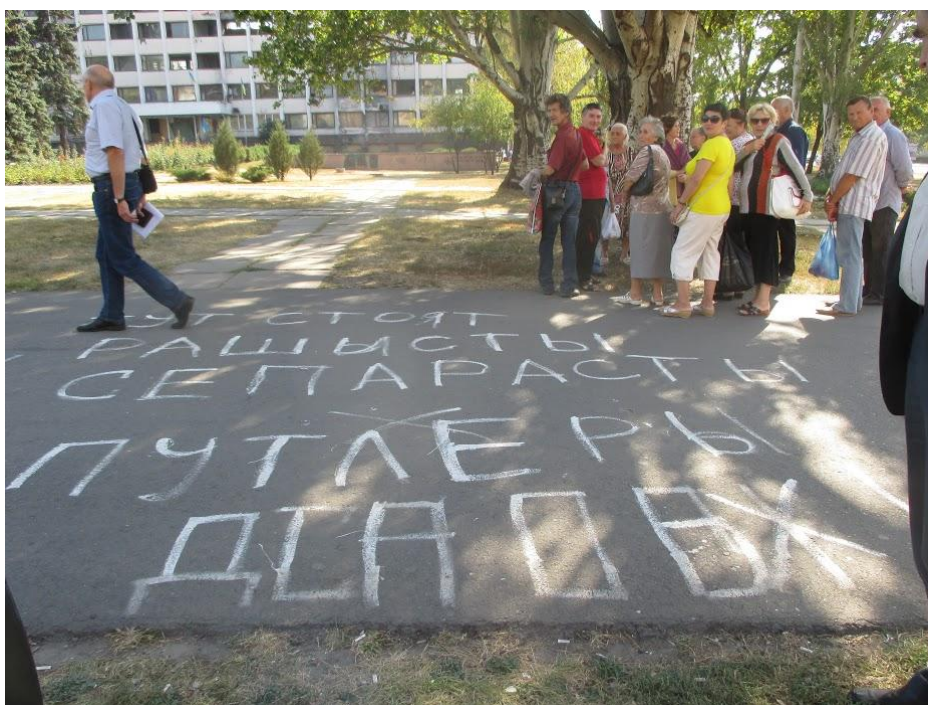 ТУТ СТОЯТ
РАШИСТЫ
СЕПАРАСТЫ
ПУТЛЕРЫ